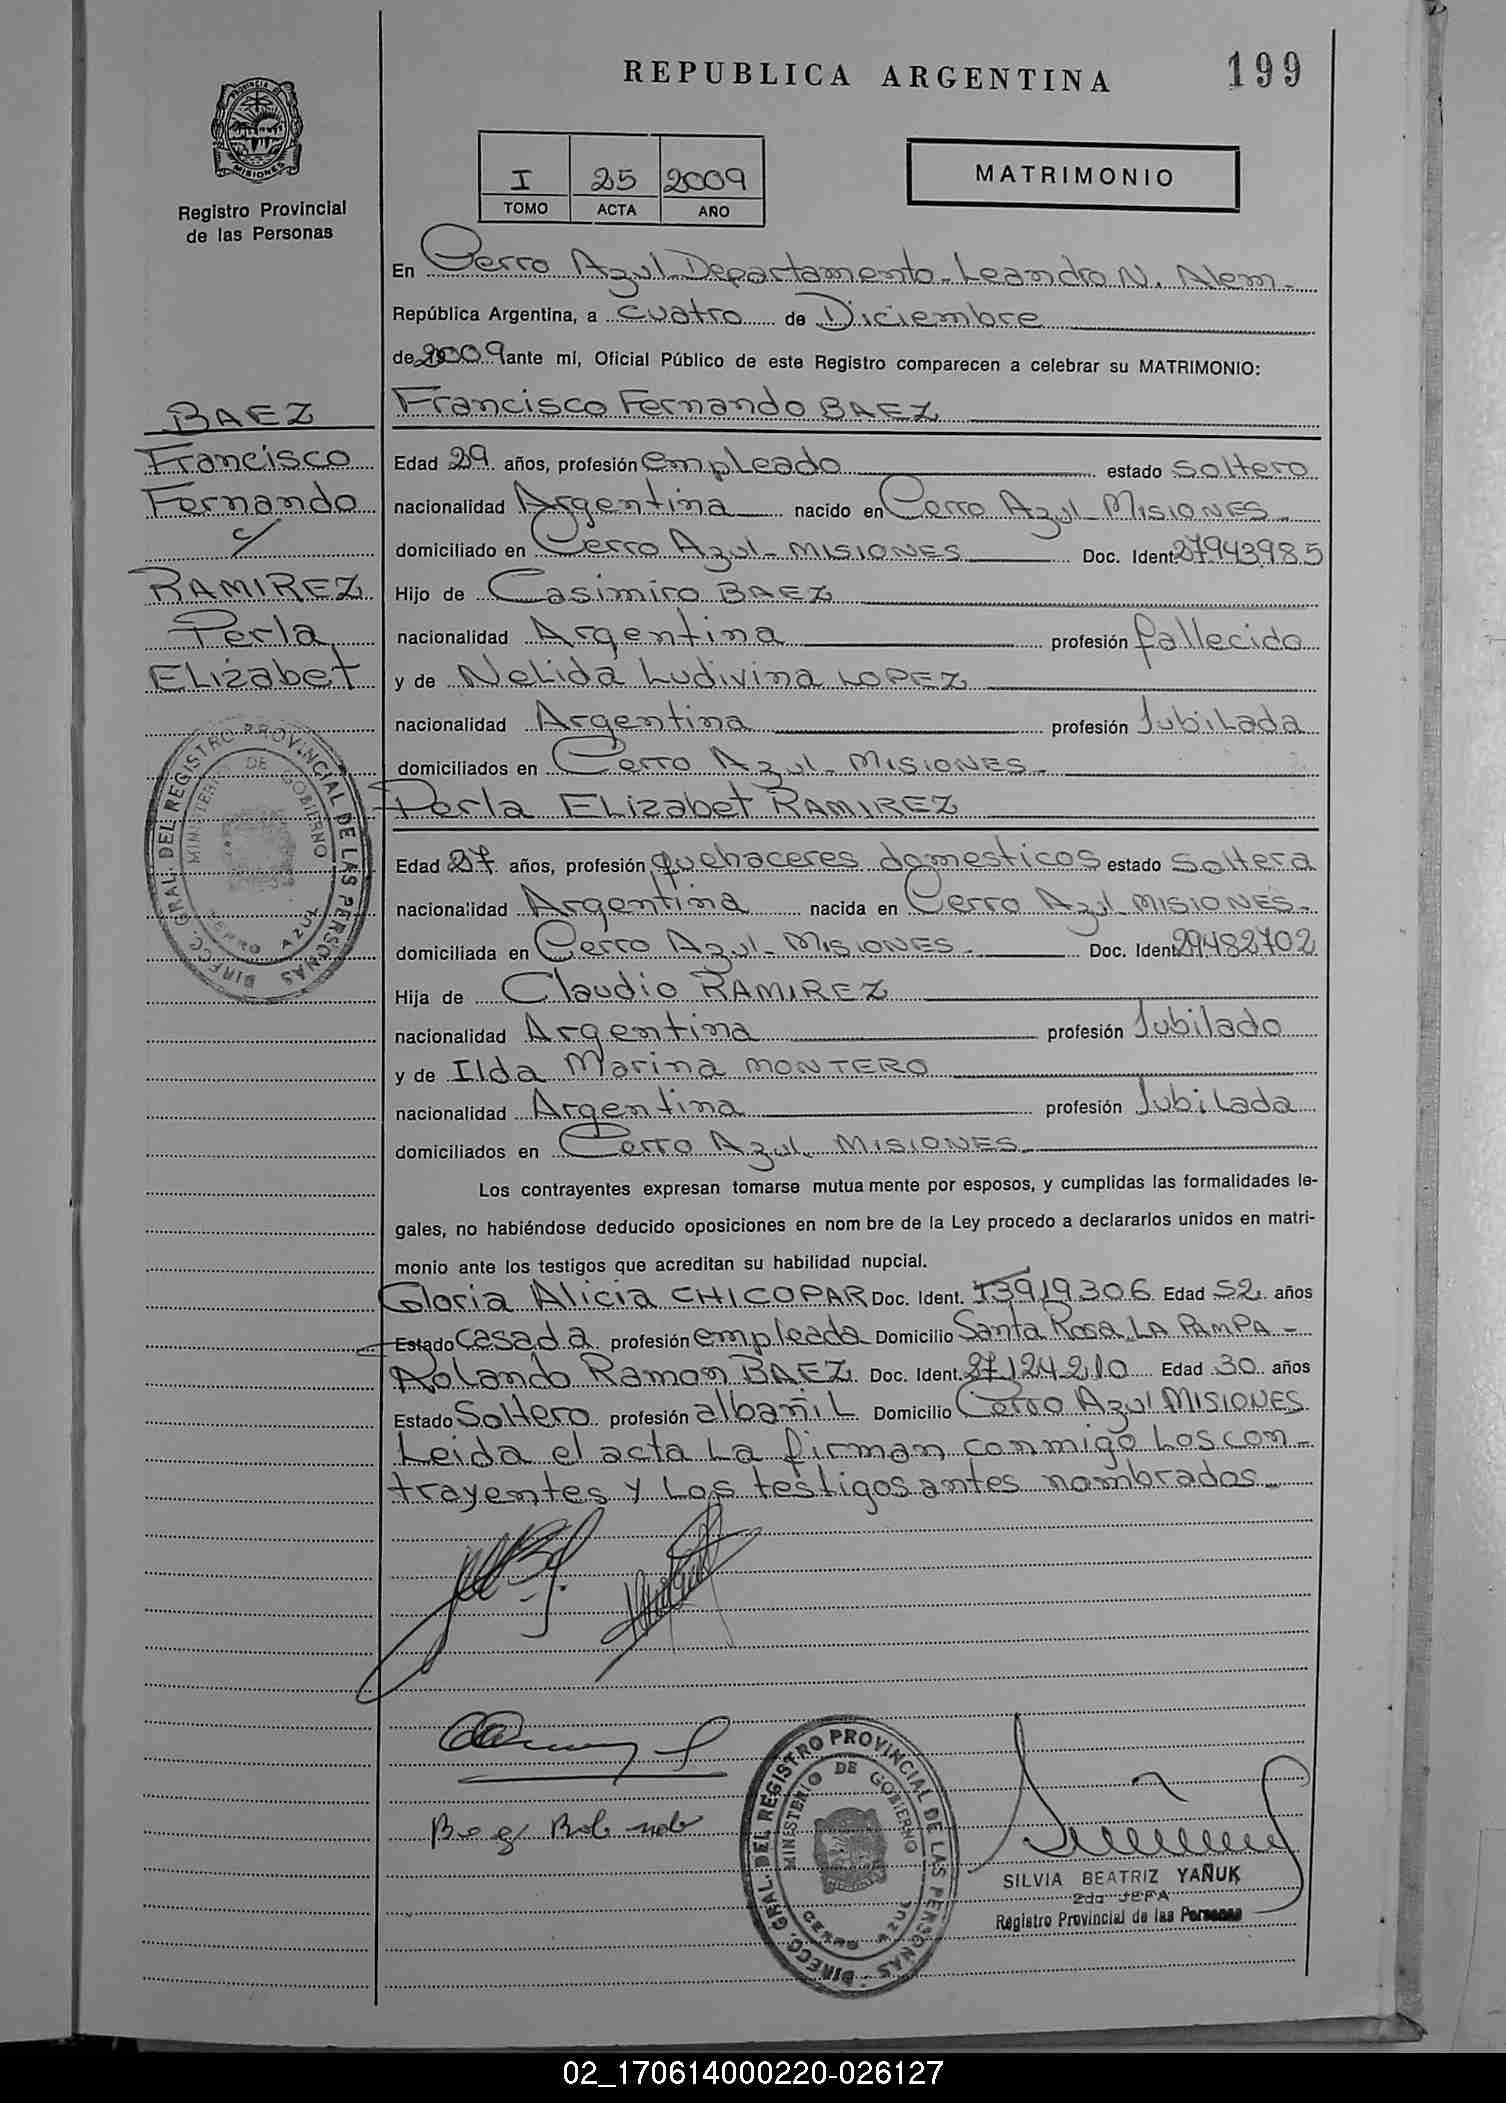 REPUBLICA ARGENTINA
199
PROVINCIA DE
MISIONES
Registro Provincial
de las Personas
I 25 2009
TOMO ACTA AÑO
MATRIMONIO
En Cerro Azul Departamento Leandro N. Alem
República Argentina, a cuatro de Diciembre
de 2009 ante mí, Oficial Público de este Registro comparecen a celebrar su MATRIMONIO:
Francisco Fernando BAEZ
BAEZ
Francisco
Fernando
c/
RAMIREZ
Perla
Elizabet
Edad 29 años, profesión empleado estado soltero
nacionalidad Argentina nacido en Cerro Azul MISIONES
domiciliado en Cerro Azul - MISIONES Doc. Ident. 27943985
Hijo de Casimiro BAEZ
nacionalidad Argentina profesión fallecido
y de Nelida Ludivina LOPEZ
nacionalidad Argentina profesión Jubilada
domiciliados en Cerro Azul - MISIONES
Perla Elizabet RAMIREZ
Edad 27 años, profesión quehaceres domesticos estado Soltera
nacionalidad Argentina nacida en Cerro Azul MISIONES.
domiciliada en Cerro Azul - MISIONES Doc. Ident. 29482702
Hija de Claudio RAMIREZ
nacionalidad Argentina profesión Jubilado
y de Ilda Marina MONTERO
nacionalidad Argentina profesión Jubilada
domiciliados en Cerro Azul MISIONES
Los contrayentes expresan tomarse mutua mente por esposos, y cumplidas las formalidades le-
gales, no habiéndose deducido oposiciones en nom bre de la Ley procedo a declararlos unidos en matri-
monio ante los testigos que acreditan su habilidad nupcial.
Gloria Alicia CHICOPAR Doc. Ident. 13919306 Edad 52 años
Estado casada profesión empleada Domicilio Santa Rosa LA PAMPA -
Rolando Ramon BAEZ Doc. Ident. 27124210 Edad 30 años
Estado Soltero profesión albañil Domicilio Cerro Azul MISIONES
Leida el acta la firman conmigo los con-
trayentes y los testigos antes nombrados
DIRECC. GRAL. DEL REGISTRO PROVINCIAL DE LAS PERSONAS
MINISTERIO DE GOBIERNO
CERRO AZUL
DIRECC. GRAL. DEL REGISTRO PROVINCIAL DE LAS PERSONAS
MINISTERIO DE GOBIERNO
CERRO AZUL
SILVIA BEATRIZ YAÑUK
2da JEFA
Registro Provincial de las Personas
02_170614000220-026127